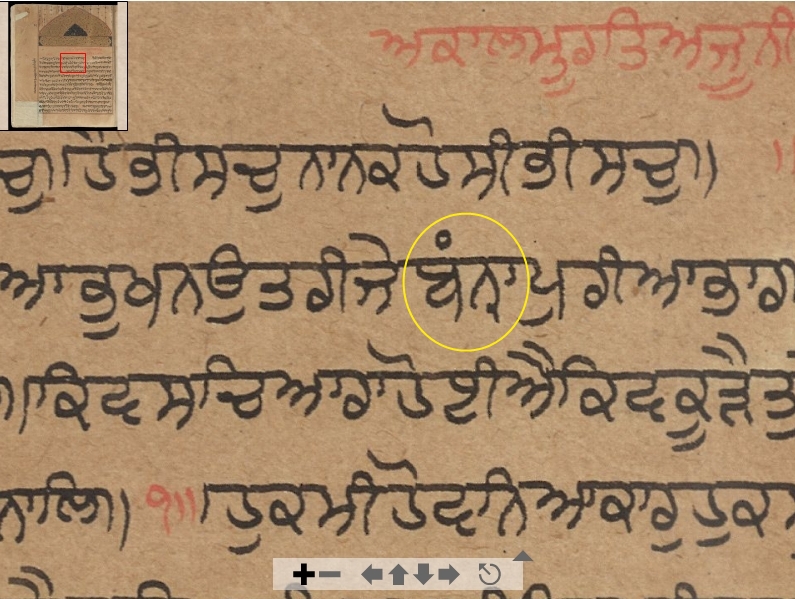 ਅਕਾਲਮੂਰਤਿਅਜੂਨੀ
ਚੁ।ਹੈਭੀਸਚੁਨਾਨਕਹੋਸੀਭੀਸਚੁ। ॥
ਆਭੁਖਨਉਤਰੀਜੇਬੰਨ੍ਹਾਪੁਰੀਆਭਾਰ
॥ਕਿਵਸਚਿਆਰਾਹੋਈਐਕਿਵਕੂੜੈਤੁ
ਨਾਲਿ। ੧॥ ।ਹੁਕਮੀਹੋਵਨਿਆਕਾਰੁਹੁਕਮ